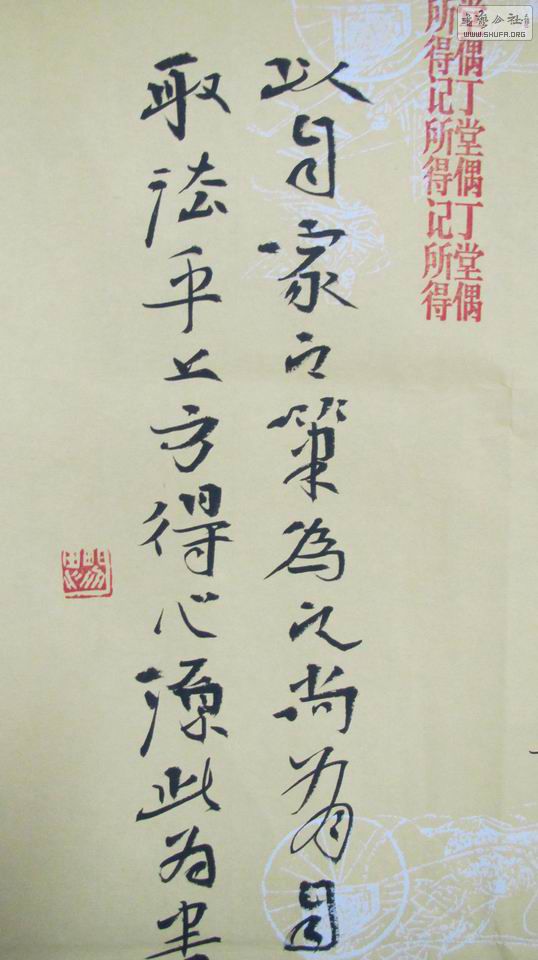 堂偶丁堂偶丁堂偶
所得记所得记所得
以自家之為之尚有自
取法乎上方得心源此为書
WWW.SHUFA.ORG